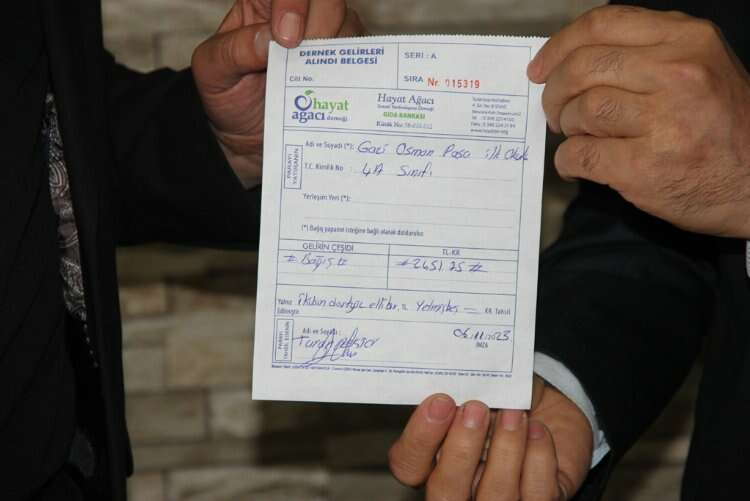 DERNEK GELİRLERİ
ALINDI BELGESİ
SERİ : A
Cilt No:
SIRA Nr. 015319
hayat
ağacı derneği
Hayat Ağacı
GIDA BANKASI
PARAYI
YATIRANIN
Adı ve Soyadı (*): Gazi Osman Paşa ilk Okulu
T.C. Kimlik No : 4/A Sınıfı
Yerleşim Yeri (*):
(*) Bağış yapanın isteğine bağlı olarak doldurulur.
GELİRİN ÇEŞİDİ
TL-KR
# Bağış #
# 2451.25 #
Yalnız ikibin dörtyüz elli bir TL Yetmişbeş KR. Tahsil
Edilmiştir.
PARAYI
TAHSİL EDENİN
Adı ve Soyadı :
06.11.2023
İMZA